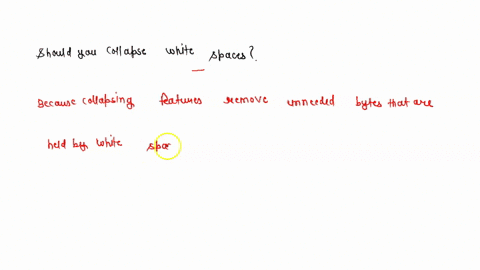 Should you collapse white spaces?
Because collapsing features remove unneeded bytes that are
held by white spac